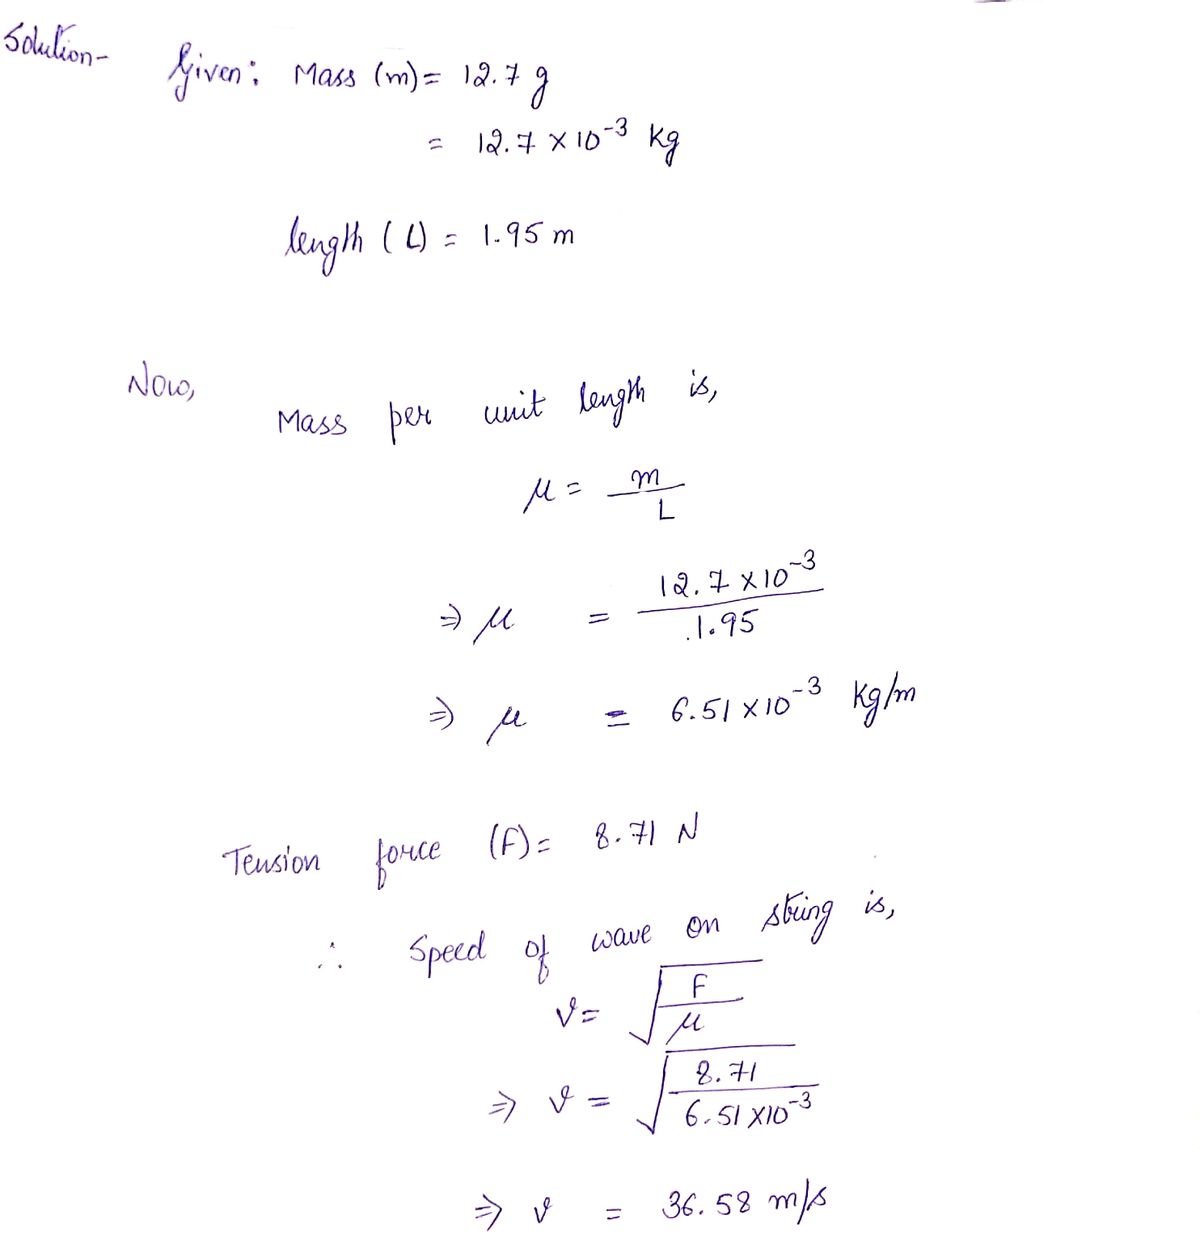 Solution- Given: Mass (m) = 12.7 g
= 12.7 × 10⁻³ Kg
length (L) = 1.95 m
Now,
Mass per unit length is,
μ = m/L
⇒ μ = 12.7 × 10⁻³ / 1.95
⇒ μ = 6.51 × 10⁻³ Kg/m
Tension force (F) = 8.71 N
∴ Speed of wave on string is,
v = √(F/μ)
⇒ v = √(8.71 / 6.51 × 10⁻³)
⇒ v = 36.58 m/s